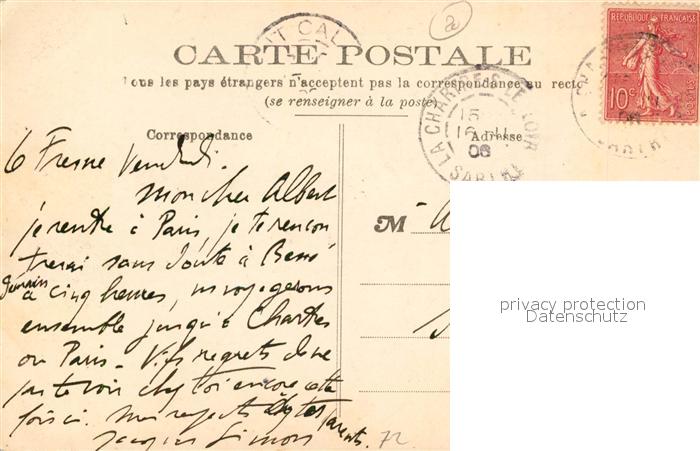 CARTE POSTALE
Tous les pays étrangers n'acceptent pas la correspondance au recto
(se renseigner à la poste)
Correspondance
Adresse
RÉPUBLIQUE FRANÇAISE
10c
LA CHARTRE-S-LE-LOIR
15
16
06
SARTHE
Fresne Vendredi.
Mon cher Albert
je rentre à Paris, je te rencon
trerai sans doute à Bessé
demain
à cinq heures, ns voyagerons
ensemble jusqu'à Chartres
ou Paris. Vifs regrets de ne
pas te voir chez toi encore cette
fois ci. Mes respects à tes parents.
Jacques Simon
72
M
privacy protection
Datenschutz